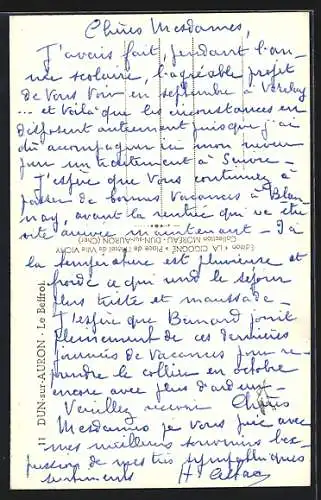 Chères Mesdames,
J'avais fait, pendant l'an-
née scolaire, l'agréable projet
de vous voir en septembre à Vézelay
... et voilà que les circonstances en
disposent autrement puisque j'ai
dû accompagner ici mon neveu
pour un traitement à suivre -
J'espère que vous continuez à
passer de bonnes vacances à
avant la rentrée qui va être
vite arrivée maintenant - Ici
la température est pluvieuse et
froide ce qui rend le séjour
plus triste et maussade -
J'espère que Bernard jouit
pleinement de ces dernières
journées de vacances pour re-
prendre le collier en octobre
encore avec plus d'ardeur -
Veuillez recevoir Chères
Mesdames je vous prie avec
mes meilleurs souvenirs l'ex-
pression de mes très sympathiques
sentiments H.
11 DUN-sur-AURON - Le Beffroi
Edition « LA CIGOGNE » Place de l'Hôtel de Ville VICHY
Collection MOREAU - DUN-sur-AURON (Cher)